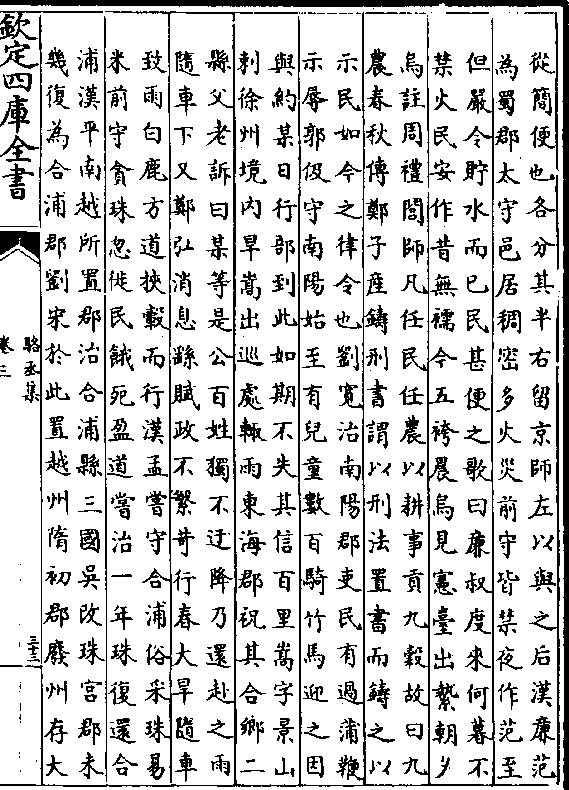 從簡便也各分其半右留京師左以與之后漢廉范
為蜀郡太守邑居稠密多火災前守皆禁夜作范至
但嚴令貯水而已民甚便之歌曰廉叔度來何暮不
禁火民安作昔無襦今五袴晨烏見憲臺出縶朝夕
烏註周禮閭師凡任民任農以耕事貢九穀故曰九
農春秋傳鄭子產鑄刑書謂以刑法置書而鑄之以
示民如今之律令也劉寬治南陽郡吏民有過蒲鞭
示辱郭伋守南陽始至有兒童數百騎竹馬迎之因
與約某日行部到此如期不失其信百里嵩字景山
刺徐州境内旱嵩出巡處輙雨東海郡祝其合鄉二
縣父老訴曰某等是公百姓獨不迂降乃還赴之雨
隨車下又鄭弘消息繇賦政不繁苛行春大旱隨車
致雨白鹿方道挾轂而行漢孟嘗守合浦俗采珠易
米前守貪珠忽徙民餓死盈道嘗治一年珠復還合
浦漢平南越所置郡治合浦縣三國吳改珠宮郡未
幾復為合浦郡劉宋於此置越州隋初郡廢州存大
欽定四庫全書
駱丞集
卷三
三十三